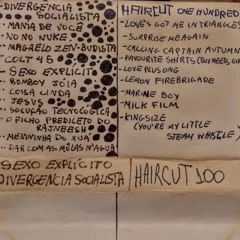 DIVERGENCIA
SOCIALISTA
MANIA DE VOCÊ
NO NO NUKE
MAGAELO ZEN-BUDISTA
COLT 45
SEXO EXPLICITO
BOMBOY JÓIA
COISA LINDA
JESUS
SOLUÇÃO TECNOLÓGICA
O FICHO PREDILETO DO
RAJNEESH
MENININHA DO XUA
DAR COM AS MÓLAS N'AGUA
HAIRCUT ONE HUNDRED
- LOVE'S GOT ME IN TRIANGLES
- SURPRISE ME AGAIN
- CALLING CAPTAIN AUTUMN
- FAVOURITE SHIRTS (BOY MEETS GIRL)
- LOVE PLUS ONE
- LEMON FIREBRIGADE
- MARINE BOY
- MILK FILM
- KINGSIZE
(YOU'RE MY LITTLE
STEAM WHISTLE)
SEXO EXPLÍCITO
DIVERGENCIA SOCIALISTA
HAIRCUT 100